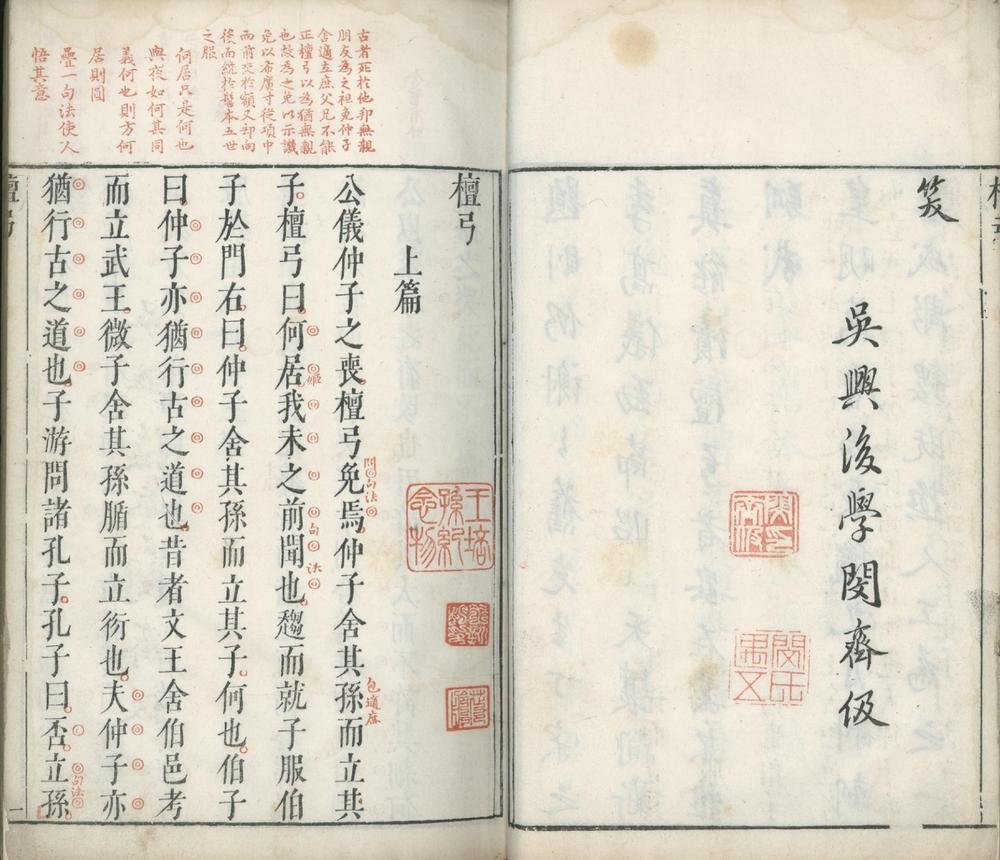 笑
吳興後學閔齊伋
古者死於他邦無親
朋友為之袒免仲子
舍適立庶父兄不能
正檀弓以為猶無親
也故為之免以示譏
免以布廣寸從項中
而前交於額又却向
後而繞於髻本五世
之服
何居只是何也
與夜如何其同
義何也則方何
居則圓
疊一句法使人
悟其意
檀弓
上篇
公儀仲子之喪檀弓免焉仲子舍其孫而立其
問句法
包適庶
子檀弓曰何居我未之前聞也趨而就子服伯
姬
句法
子於門右曰仲子舍其孫而立其子何也伯子
曰仲子亦猶行古之道也昔者文王舍伯邑考
而立武王微子舍其孫腯而立衍也夫仲子亦
猶行古之道也子游問諸孔子孔子曰否立孫
句法
王培孫紀念物
一